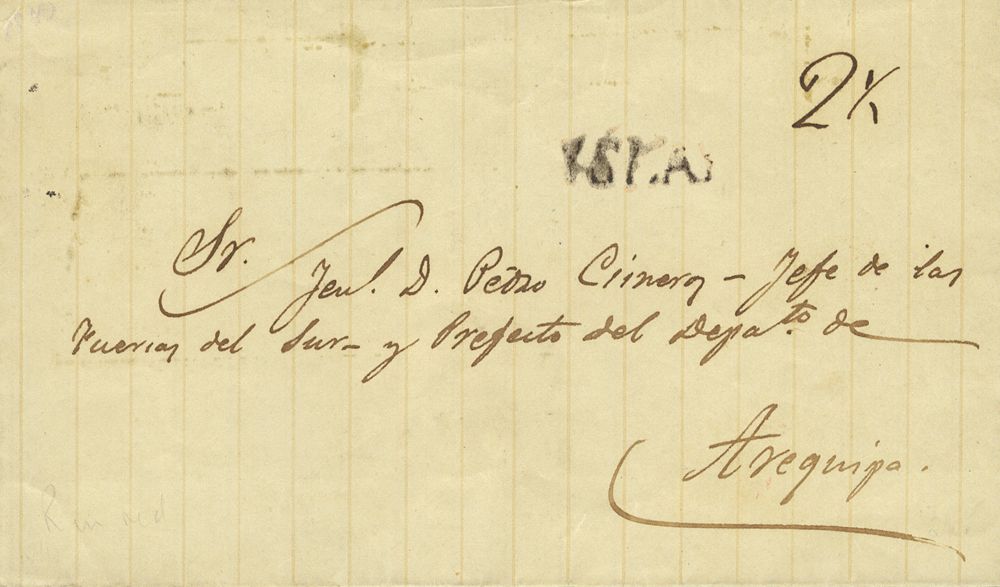 2½
Sr.
Jeul. D. Pedro Cisneros - Jefe de las
Fuerzas del Sur - y Prefecto del Depa.to de
Arequipa.